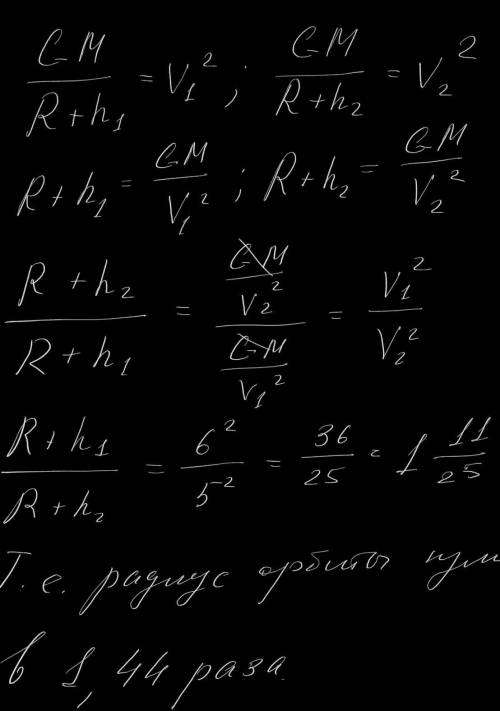 GM / R+h₁ = V₁² ; GM / R+h₂ = V₂²
R+h₁ = GM / V₁² ; R+h₂ = GM / V₂²
R+h₂ / R+h₁ = GM / V₂² / GM / V₁² = V₁² / V₂²
R+h₁ / R+h₂ = 6² / 5² = 36 / 25 = 1 11/25
Т.е. радиус орбиты
в 1,44 раза.